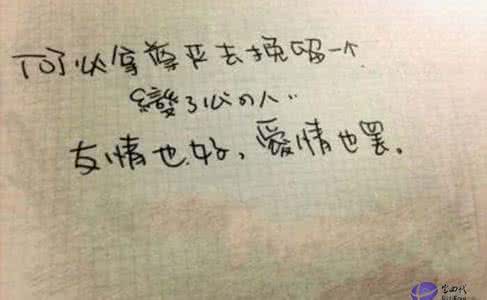 何必拿尊严去挽留一个
變了心的人..
友情也好,愛情也罢。